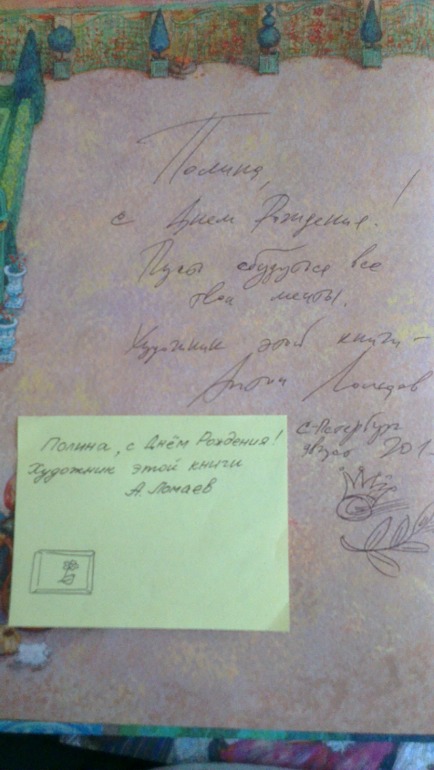 Полина,
с Днем Рождения!
Пусть сбудутся все
твои мечты.
Художник этой книги —
Антон Ломаев
С-Петербург
201
Полина, с Днём Рождения!
Художник этой книги
А. Ломаев